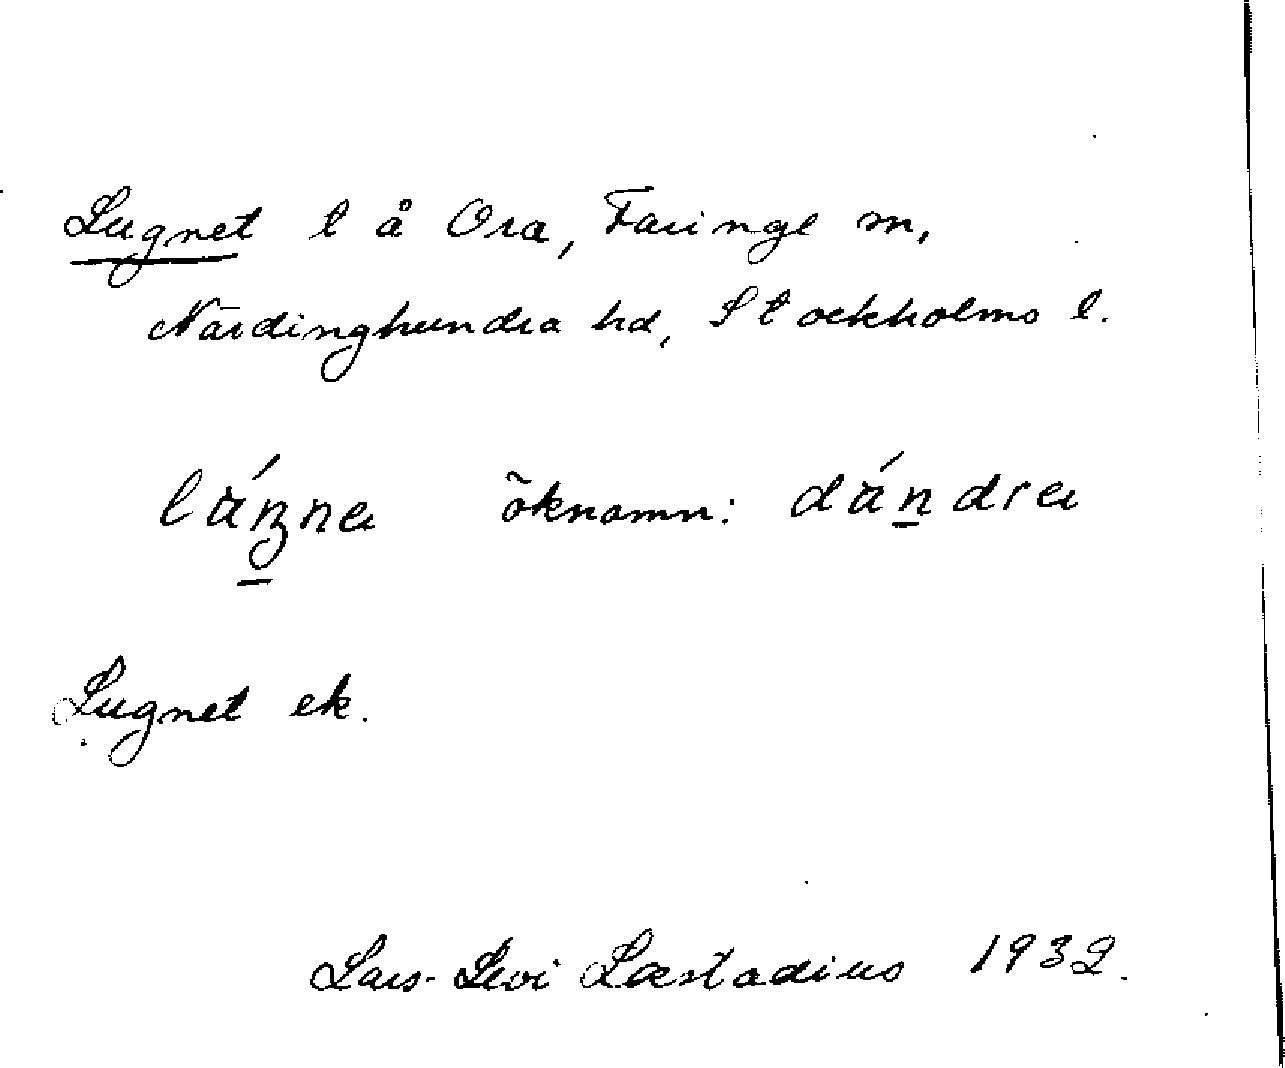 Lugnet l å Ora, Faringe sn,
Närdinghundra hd, Stockholms l.
öknamn: dándra
Lugnet ek.
Lars-Levi Læstadius 1932.